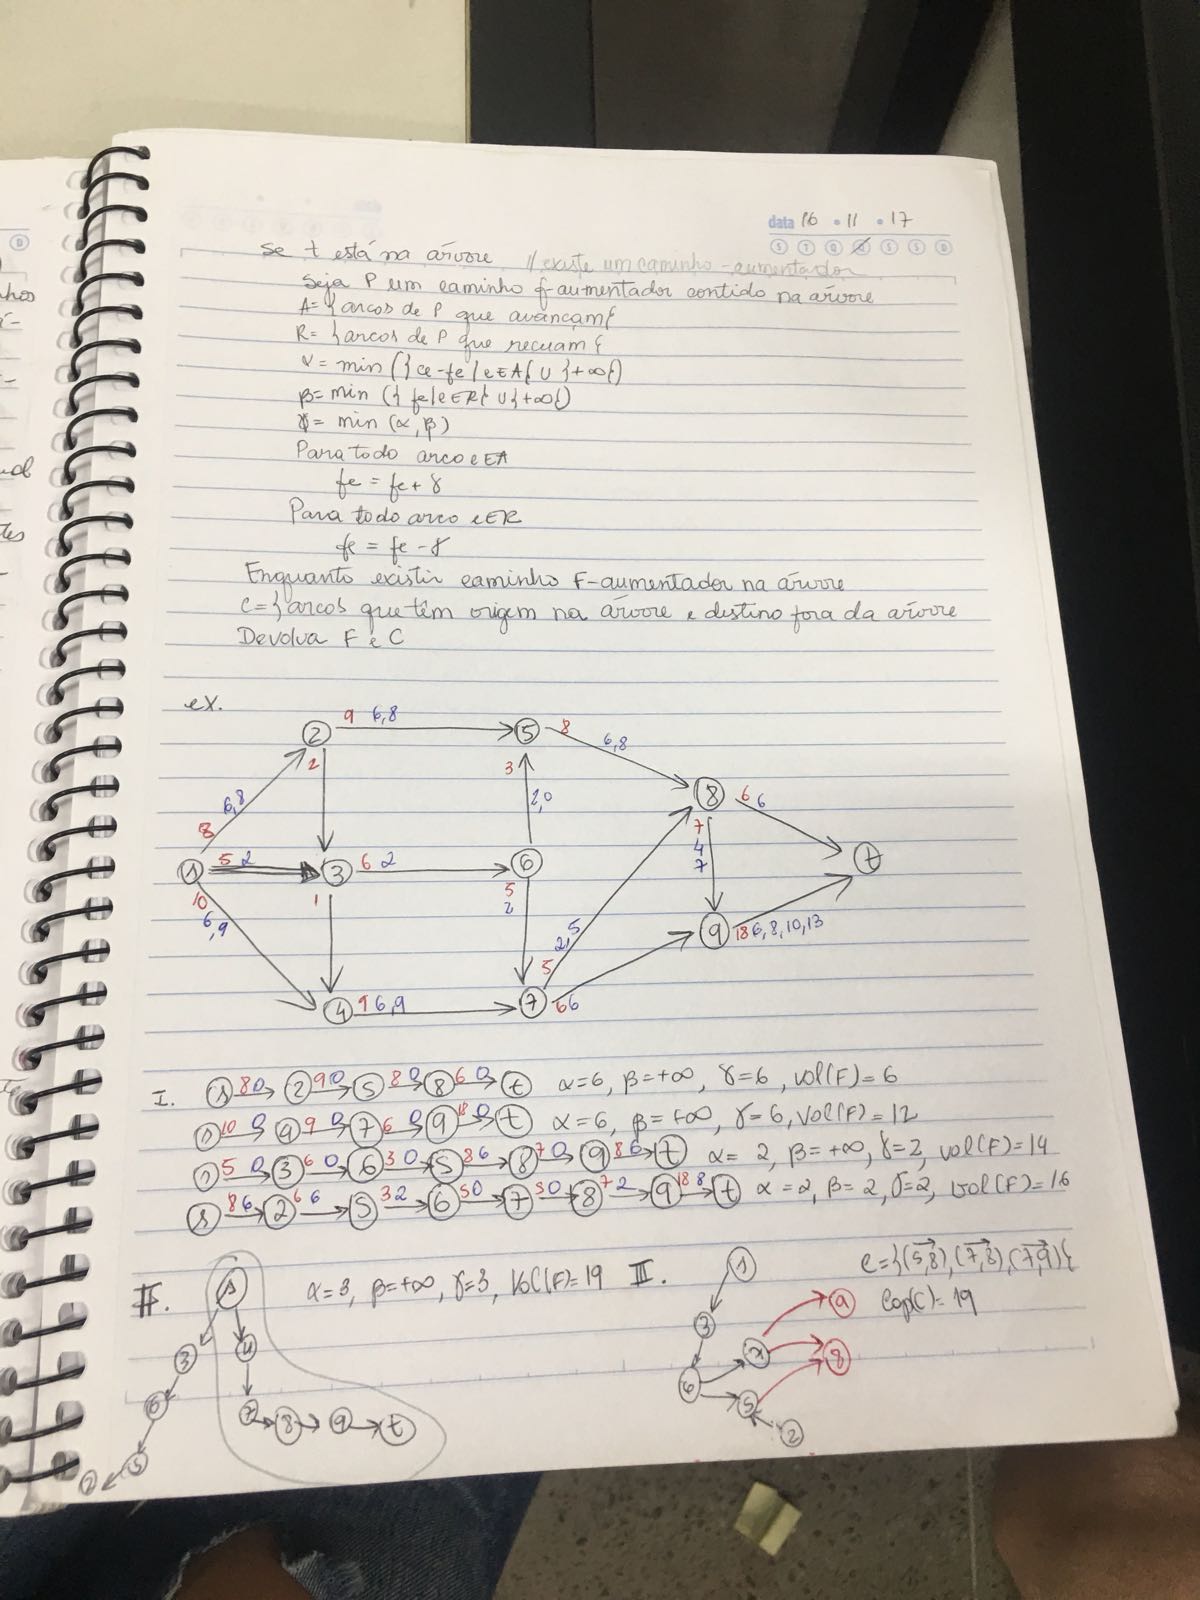 data 16 • 11 • 17
S T Q Q S S D
se t está na árvore // existe um caminho-aumentador
seja P um caminho f-aumentador contido na árvore
A= }arcos de P que avançam{
R= }arcos de P que recuam{
α= min (}ce-fe/e∈A{ ∪ }+∞{)
β= min (} fe/e∈R{ ∪ }+∞{)
γ= min (α,β)
Para todo arco e∈A
fe = fe+γ
Para todo arco e∈R
fe = fe-γ
Enquanto existir caminho F-aumentador na árvore
C=}arcos que têm origem na árvore e destino fora da árvore
Devolva F e C
ex.
2 9 6,8 5 8 6,8
2 3
6,8 2,0 8 6 6
8 7
s 5 2 3 6 2 6 4 t
10 1 5 7
6,9 2 2,5 9 18 6,8,10,13
5
4 9 6,9 7 6 6
I. s 8 0 2 9 0 5 8 0 8 6 0 t α=6, β=+∞, γ=6, vol(F)=6
s 10 0 4 9 0 7 6 0 9 18 0 t α=6, β=+∞, γ=6, vol(F)=12
s 5 0 3 6 0 6 3 0 5 8 6 8 7 0 9 8 6 t α= 2, β=+∞, γ=2, vol(F)=14
s 8 6 2 6 6 5 3 2 6 5 0 7 5 0 8 7 2 9 18 8 t α=2, β=2, γ=2, vol(F)=16
II. s α=3, β=+∞, γ=3, vol(F)=19 III. s C=}(5,8),(7,8),(7,9){
9 Cap(C)=19
3 4 3
7 8
6 6
7 8 9 t 5
5 2
2